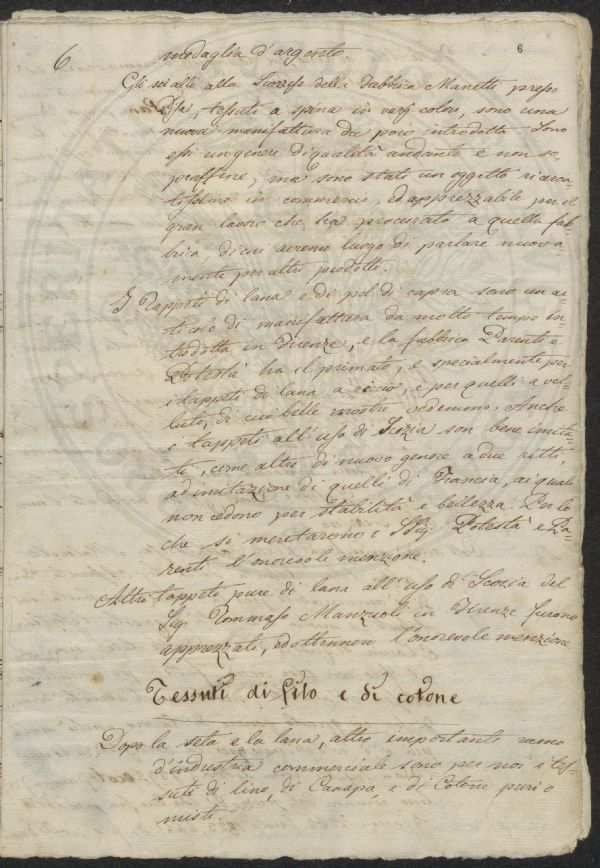 6
6
medaglia d'argento.
Gli scialli alla Scozzese della Fabbrica Manetti presso
Pisa, tessuti a spina in varj colori, sono una
nuova manifattura da poco introdotta. Sono
essi un genere di qualità andante e non so-
praffine, ma sono stati un oggetto ricerca-
tissimo in commercio, ed apprezzabile per il
gran lavoro che ha procurato a quella fab-
brica, di cui avremo luogo di parlare nuova-
mente per altri prodotti.
I Tappeti di lana e di pel di capra sono un ar-
ticolo di manifattura da molto tempo in-
trodotta in Firenze, e la fabbrica Parenti e
Potestà ha il primato, e specialmente per
i tappeti di lana a riccio, e per quelli a vel-
luto, di cui belle mostre vedemmo. Anche
i tappeti all'uso di Scozia son bene imita-
ti, come altri di nuovo genere a due ritti,
ad imitazione di quelli di Francia, ai quali
non cedono per stabilità e bellezza. Per lo
che si meritarono i SSig. Potestà e Pa-
renti l'onorevole menzione.
Altri tappeti pure di lana all'uso di Scozia del
Sig. Tommaso Manzuoli in Firenze furono
apprezzati, ed ottennero l'onorevole menzione
Tessuti di filo e di cotone
Dopo la seta e la lana, altro importante ramo
d'industria commerciale sono per noi i tes-
suti di lino, di Canapa, e di Cotone puri o
misti.